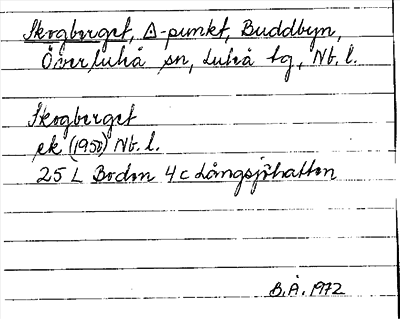 Skogberget, △-punkt, Buddbyn,
Överluleå sn, Luleå tg, Nb. l.
Skogberget
ek (1950) Nb. l.
25 L Boden 4c Långsjöhatten
B.Å. 1972